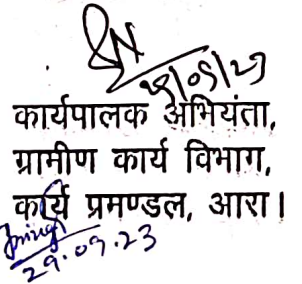 29/09/23
कार्यपालक अभियंता,
ग्रामीण कार्य विभाग,
कार्य प्रमण्डल, आरा।
29.09.23